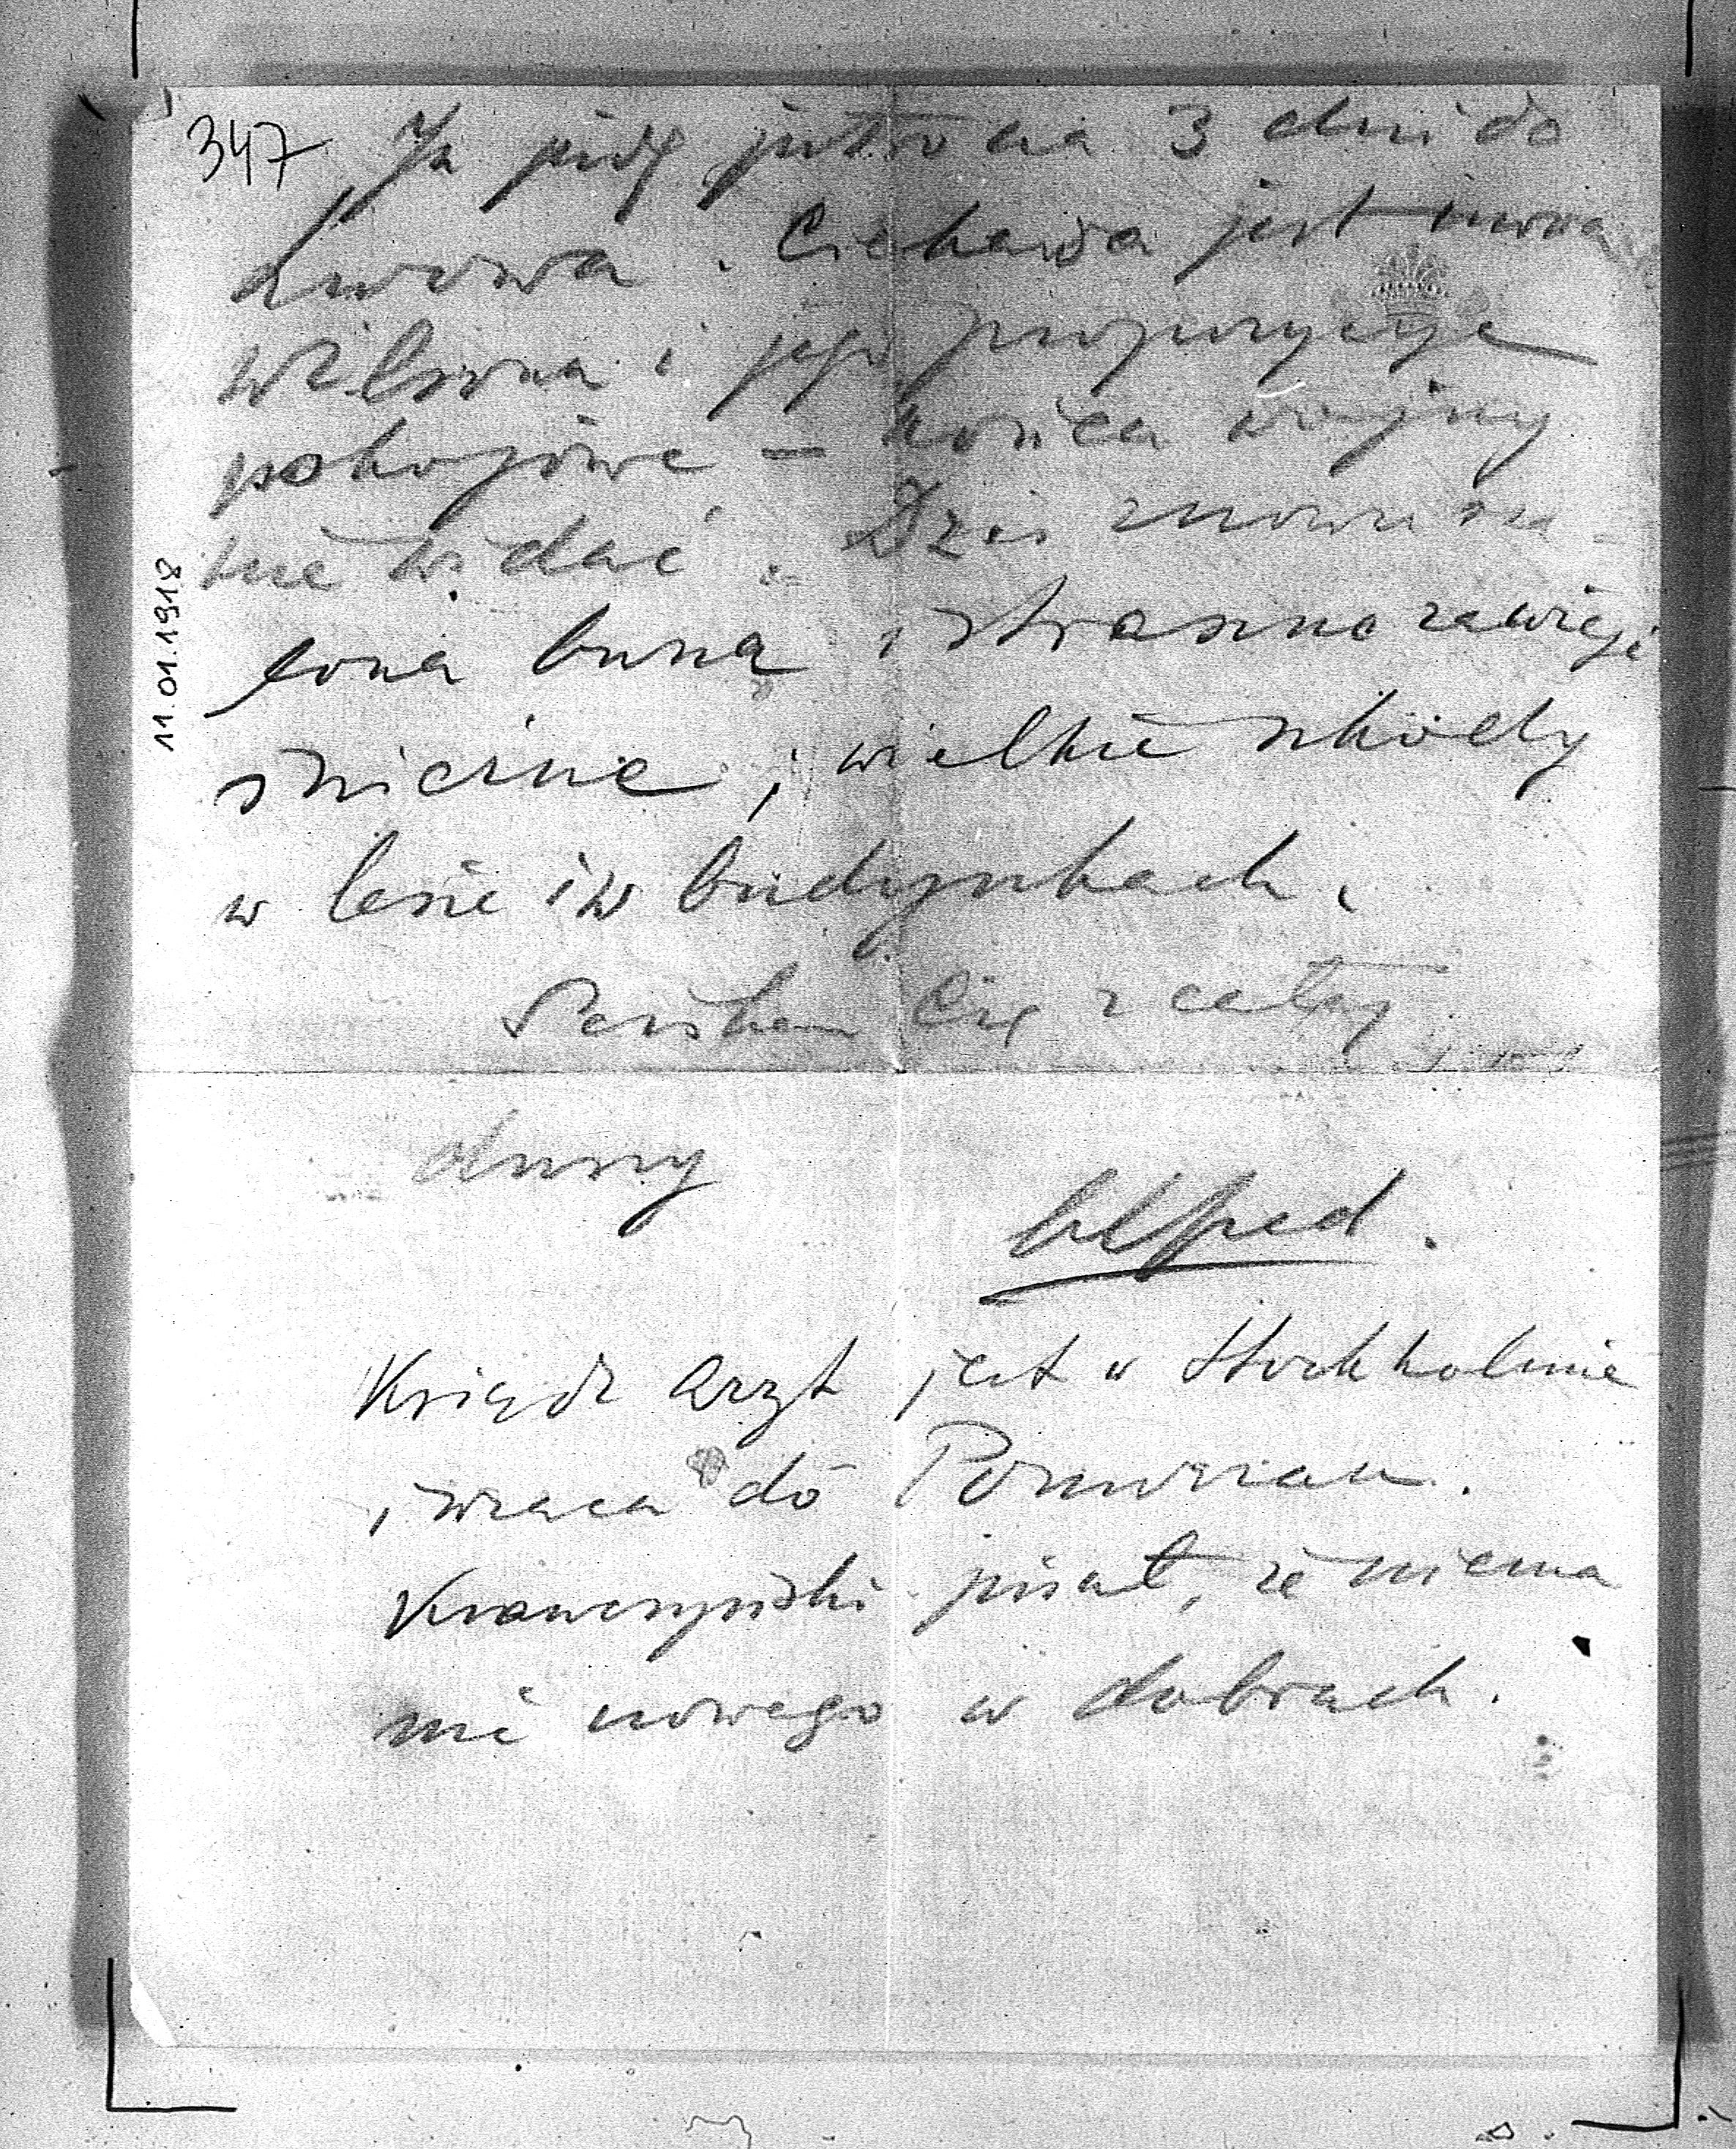 347
Ja jadę jutro na 3 dni do
Lwowa. Ciekawa jest mowa
Wilsona i jego propozycye
pokojowe, – końca wojny
nie widać. Dziś znowu sza-
lona burza i straszne zawieje
śnieżne, wielkie szkody
w lesie i w budynkach.
Ściskam Cię z całej
duszy
Alfred.
Ksiądz Arzt jest w Stockholmie
i wraca do Poznania.
Krawczyński pisał, że niema
nic nowego w dobrach.
11.01.1918